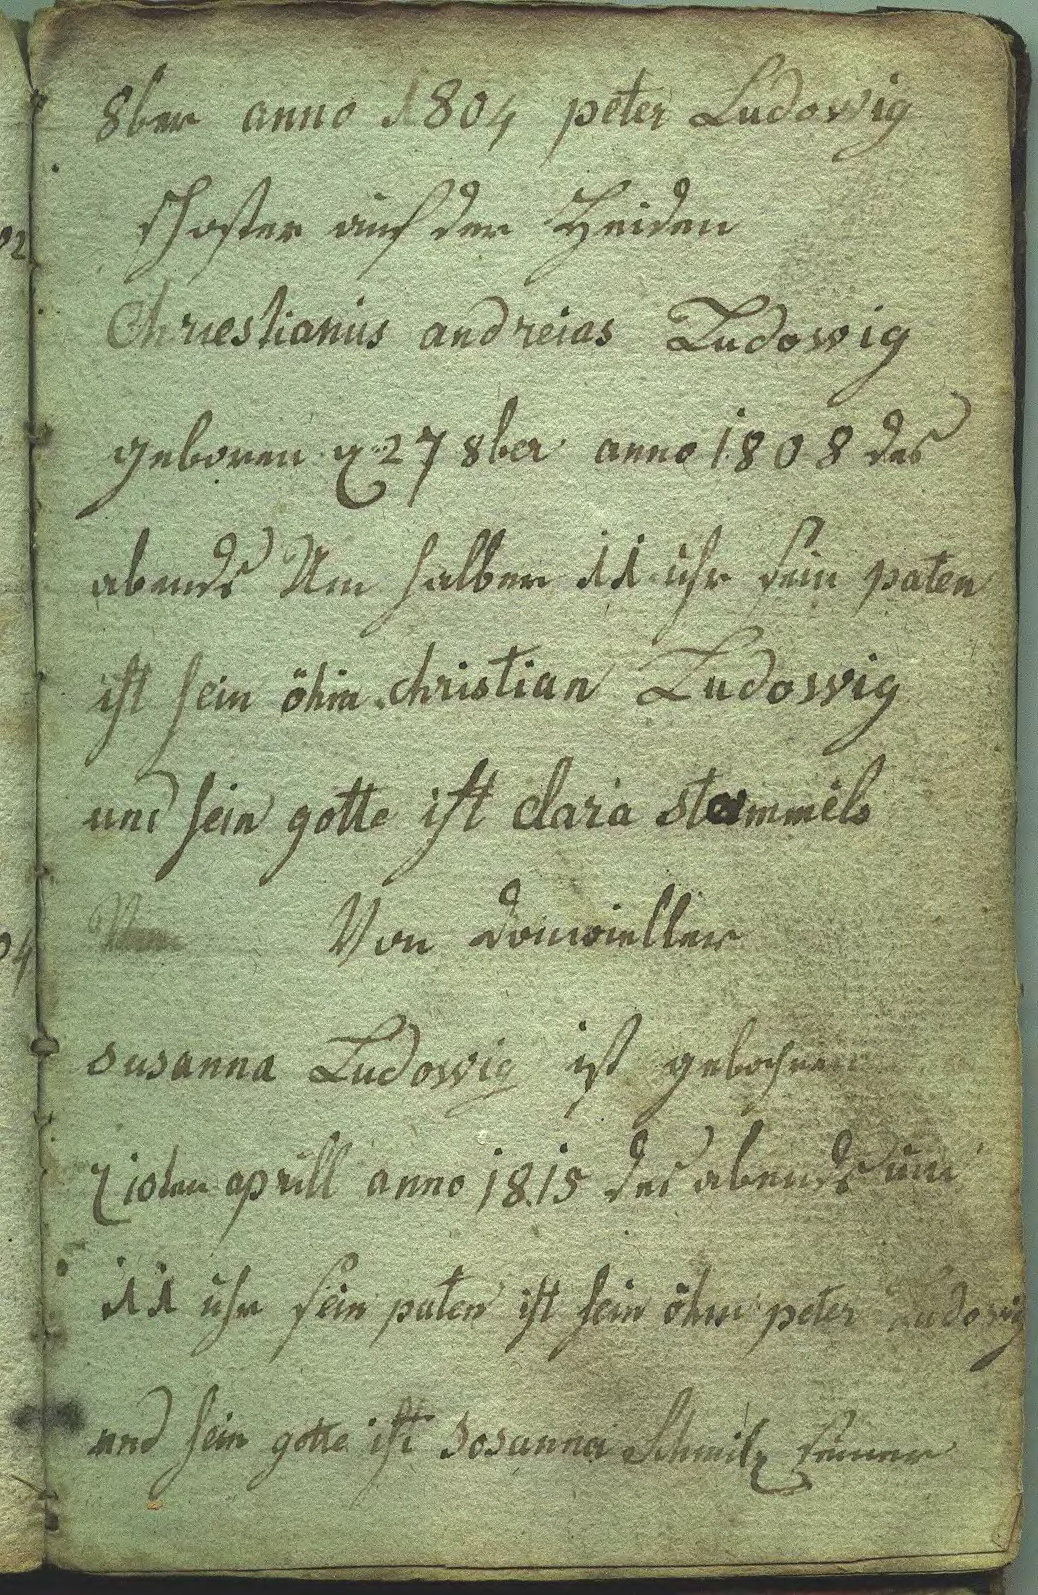 8ber anno 1804 peter Ludowig
schoster auf der Heiden
Chriestianus andreias Ludowig
geboren 27 8ber anno 1808 des
abends Um halber 11 uhr sein paten
ist sein öhm christian Ludowig
und sein gotte ist clara stammels
Von
susanna Ludowig ist gebohren
aprill anno 1815 des abends um
11 uhr sein paten ist sein öhm peter Ludowig
und sein gotte ist sosanna Schmitz
02
04